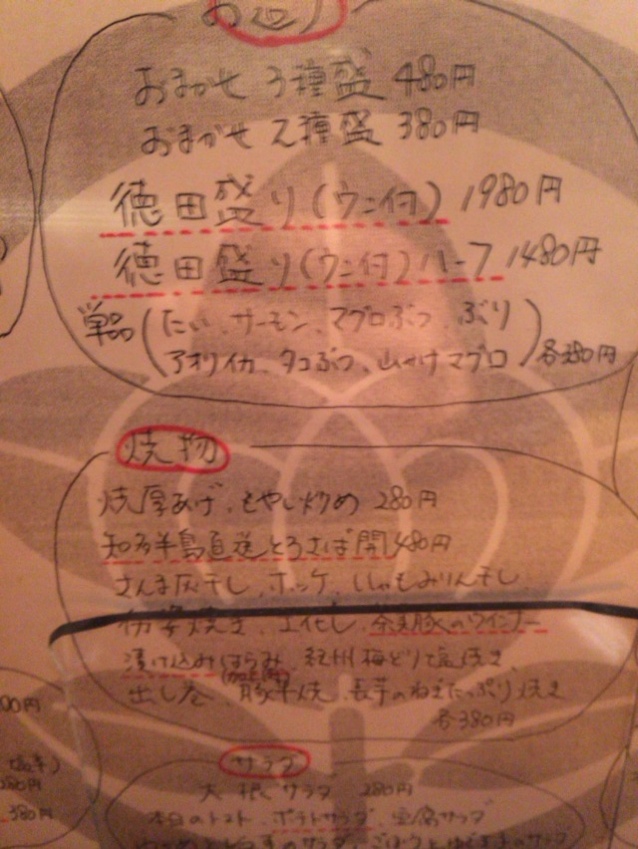 お造り
おまかせ3種盛 480円
おまかせ2種盛 380円
徳田盛り(ウニ付) 1980円
徳田盛り(ウニ付)ハーフ 1480円
単品(たい、サーモン、マグロぶつ、ぶり
アオリイカ、タコぶつ、山かけマグロ)各380円
焼物
焼厚あげ、もやし炒め 280円
知多半島直送とろさば開 480円
さんま灰干し、ホッケ、ししゃもみりん干し
姿焼き、エイヒレ、茶美豚のウインナー
漬け込みはらみ、紀州梅どり塩焼き
出し巻、豚平焼、長芋のねぎたっぷり焼き
各380円
00円
380円
サラダ
大根サラダ 280円
本日のトマト、ポテトサラダ、豆腐サラダ